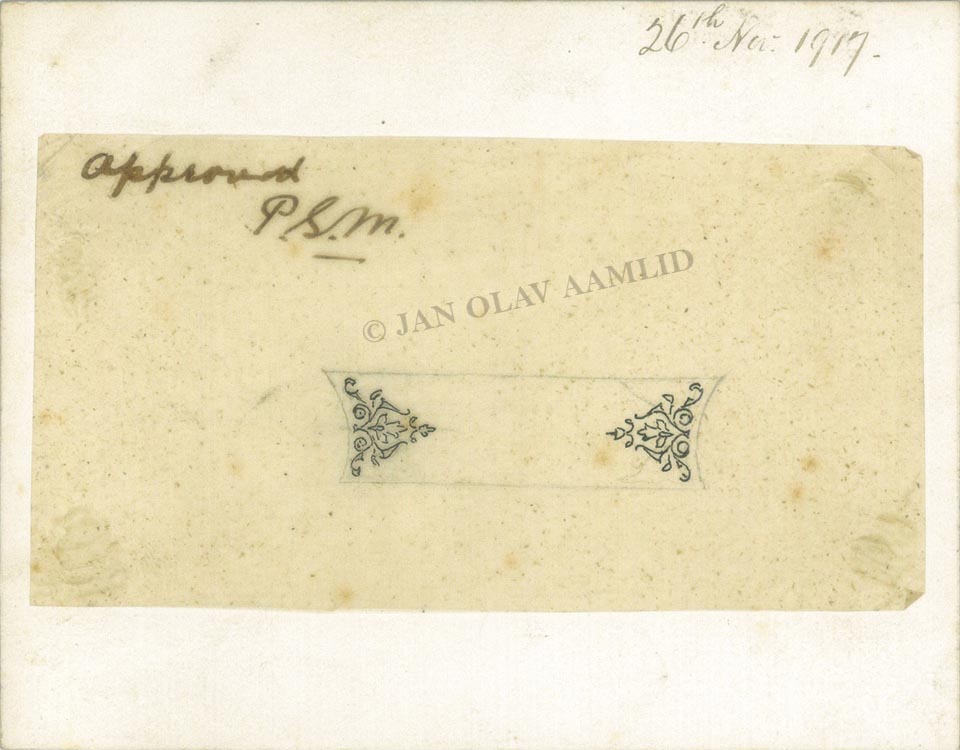 26th Nov. 1917.
Approved
P.G.M.
© JAN OLAV AAMLID